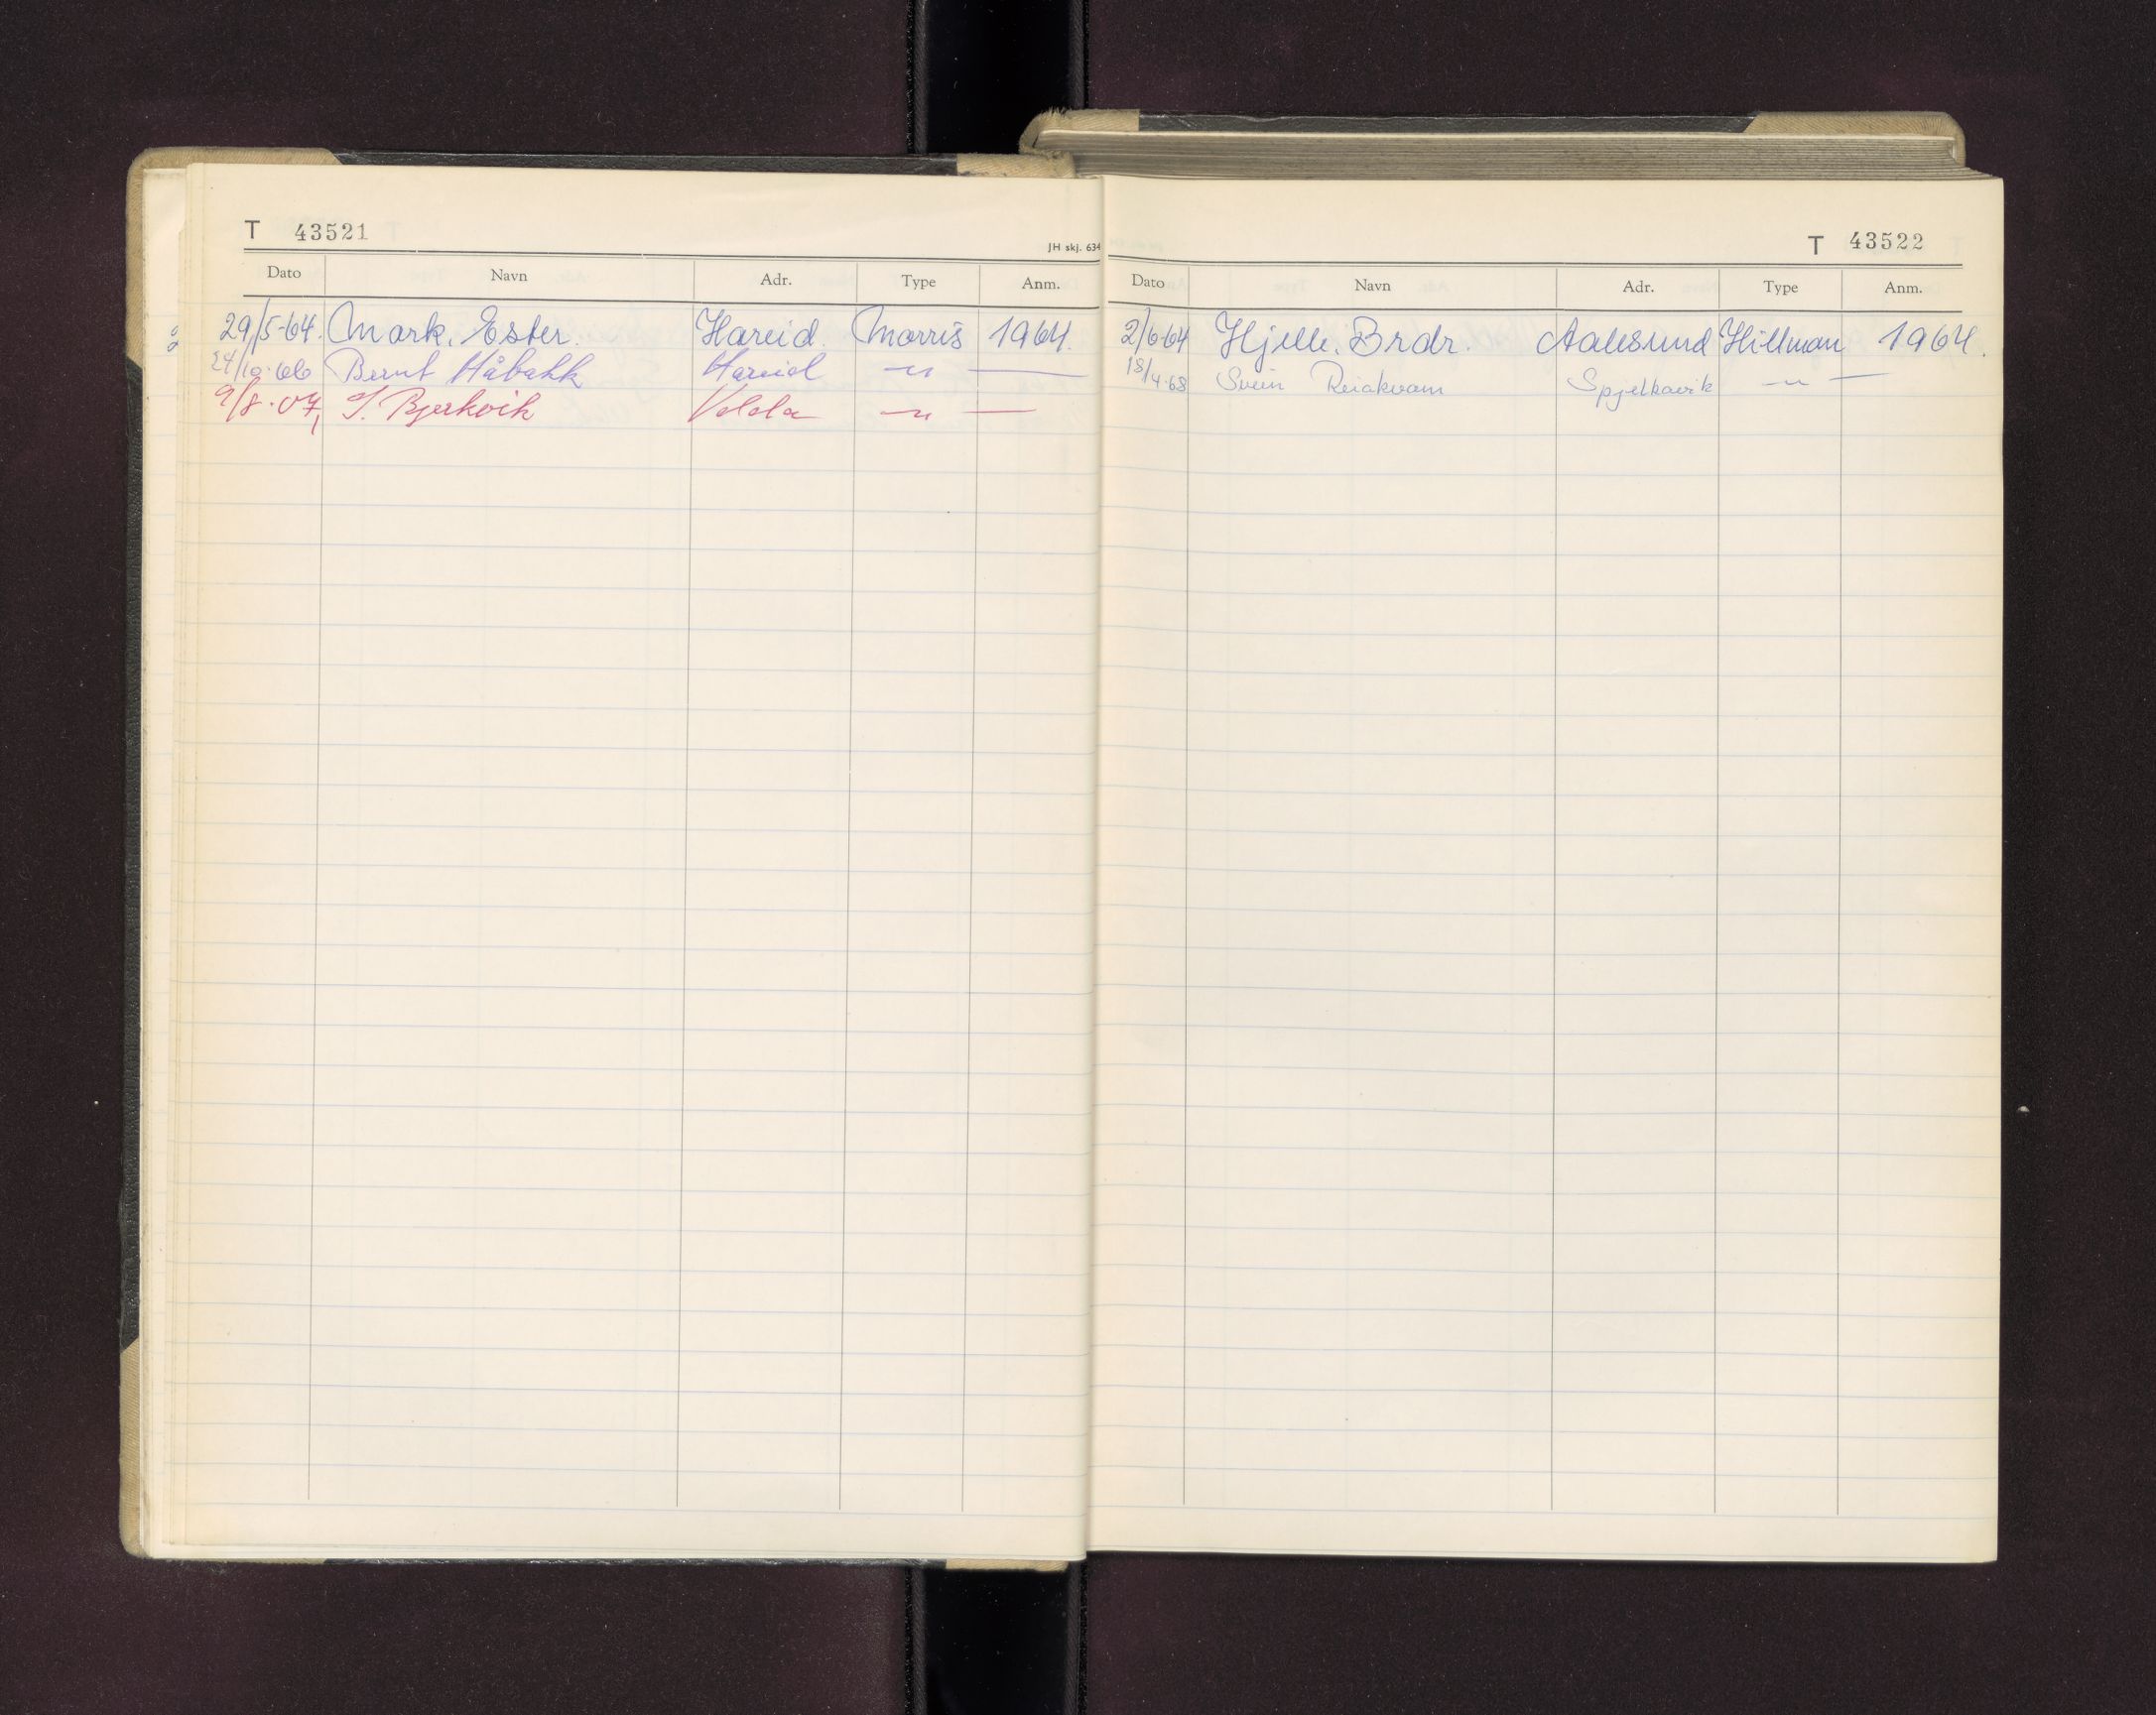 T 43521
JH skj. 634
Dato Navn Adr. Type Anm.
29/5-64. Mork, Ester. Hareid. Morris 1964.
24/10-66 Bernt Håbakk Hareid —"— —
9/8-07, S. Bjerkvik Volda —"— —
T 43522
Dato Navn Adr. Type Anm.
2/6-64 Hjelle, Brdr. Aalesund Hillman 1964.
18/4-68 Svein Reiakvam Spjelkavik —"— —